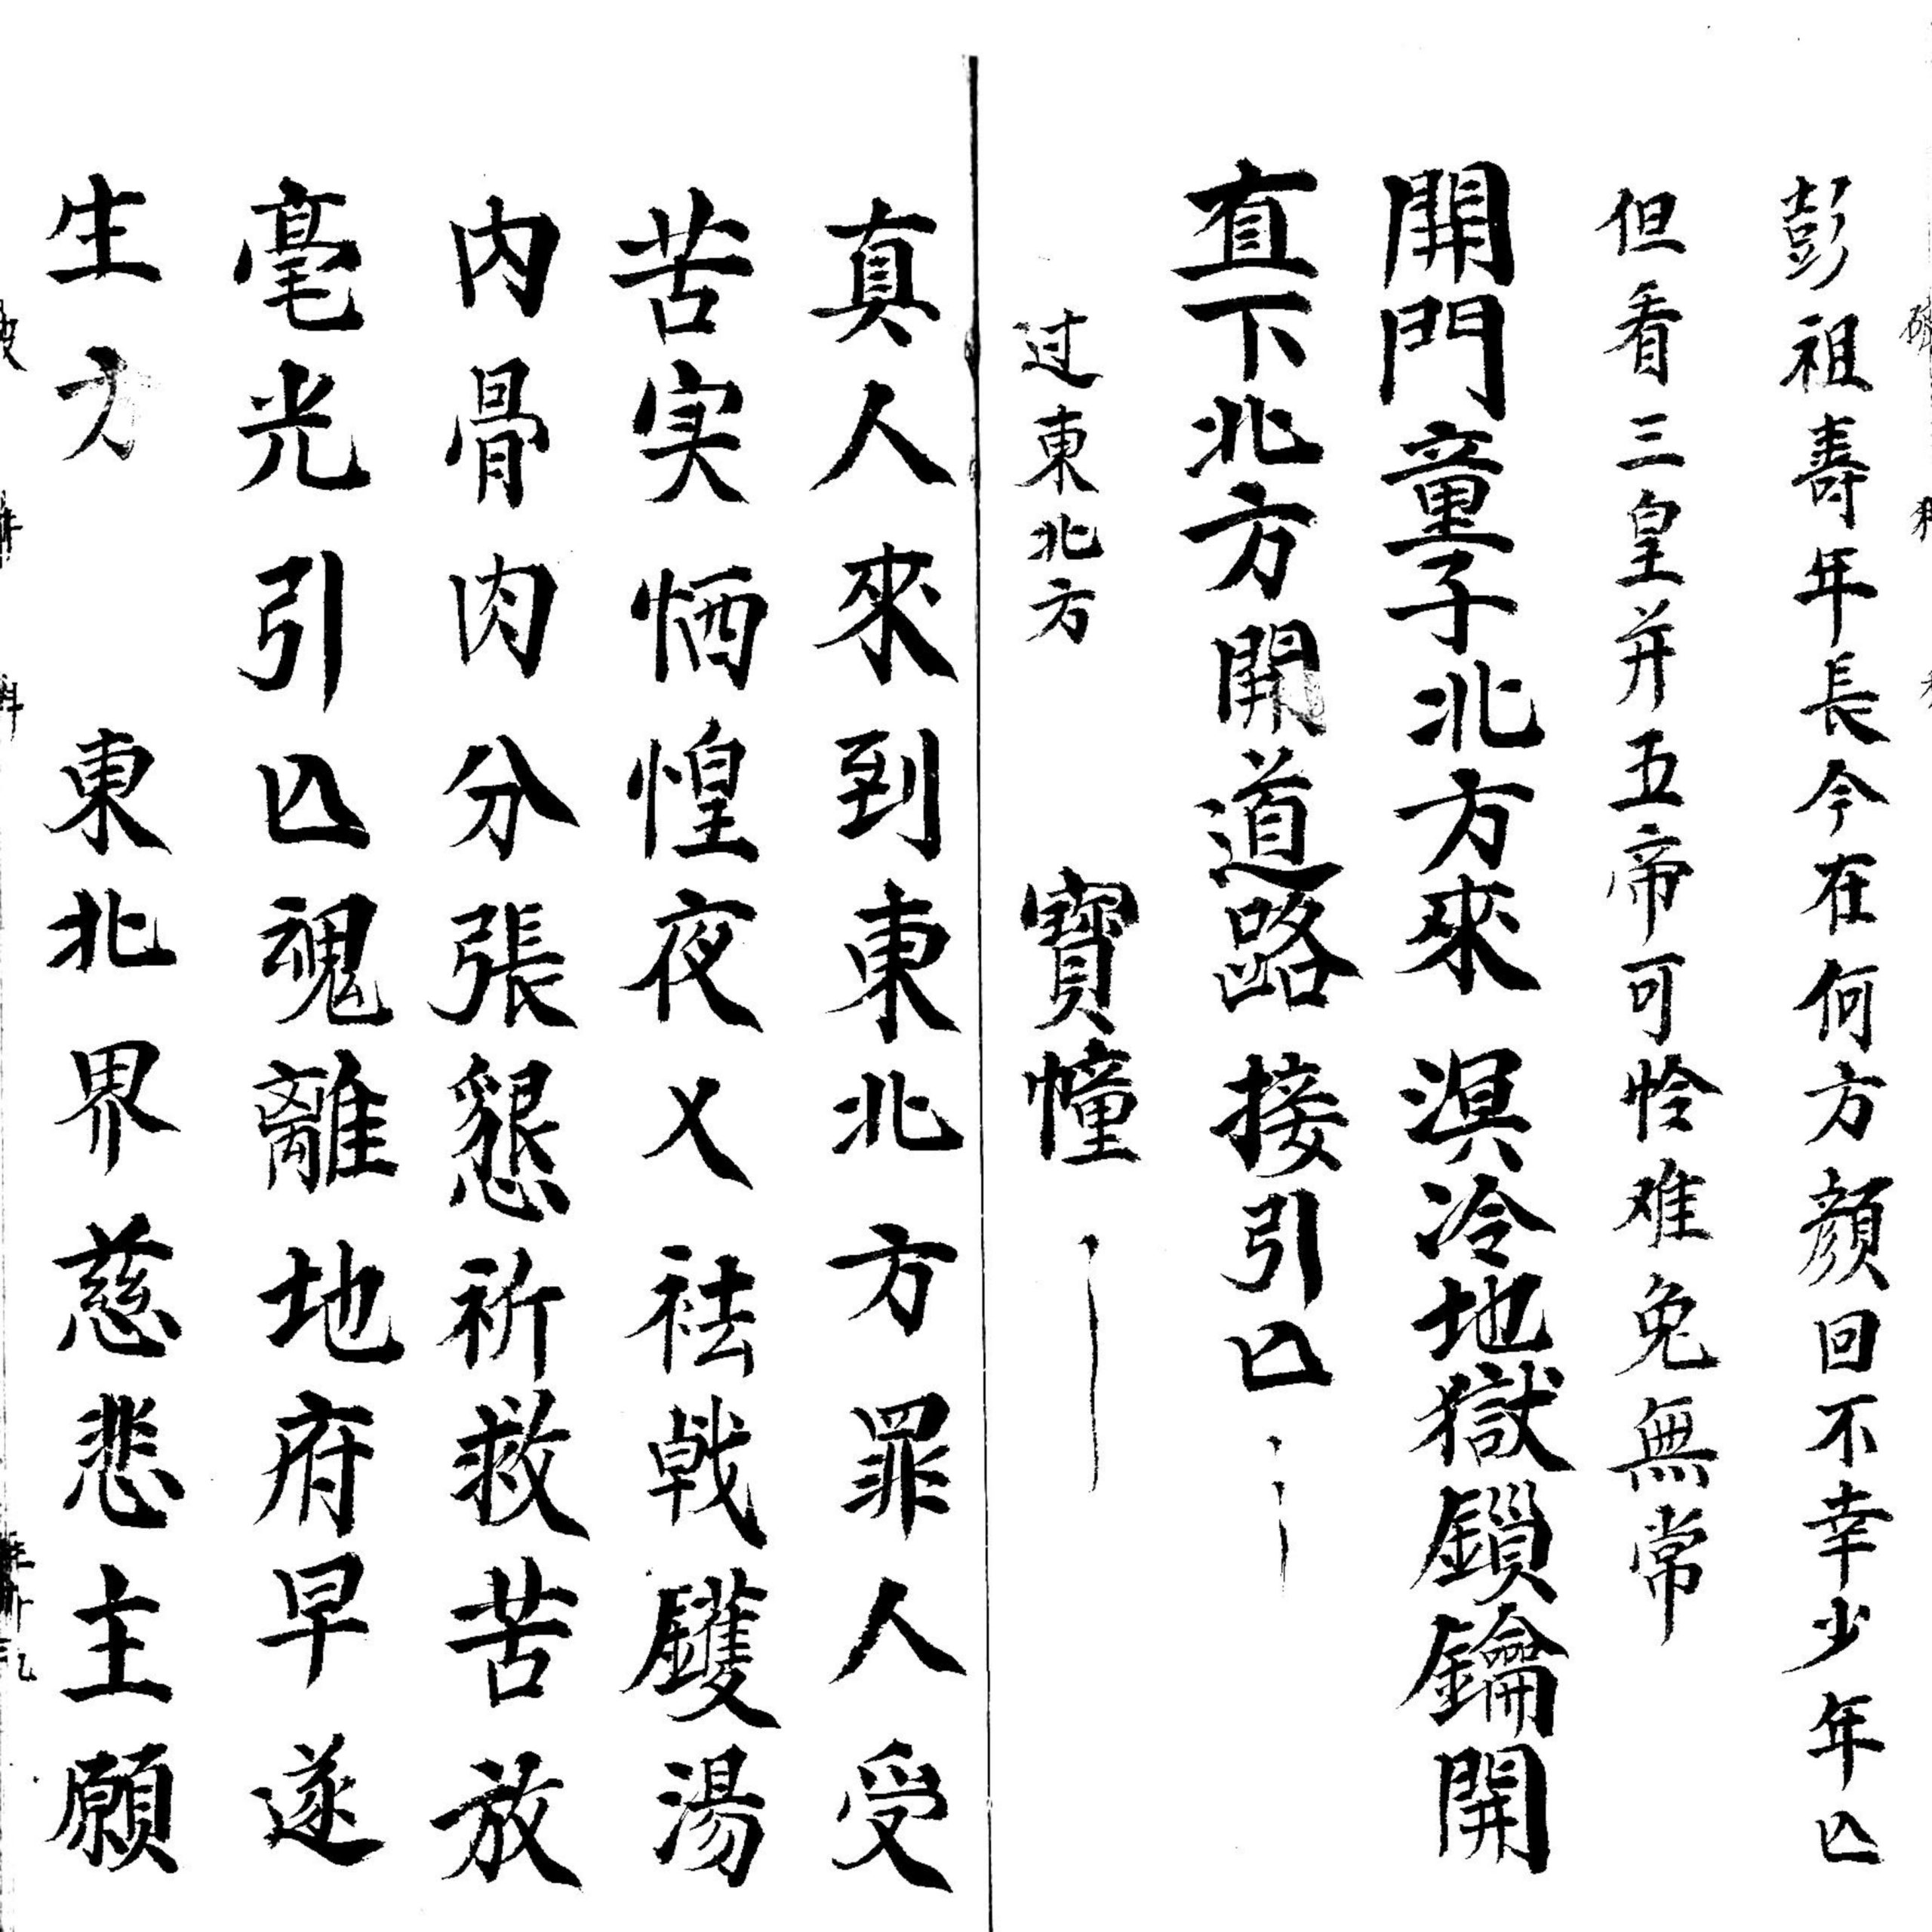 彭祖壽年長今在何方顔回不幸少年亾
但看三皇并五帝可怜难免無常
開門童子北方來溟冷地獄鎖鑰開
直下北方開道路接引亾
过東北方 寳幢
真人來到東北方罪人受
苦实恓惶夜乂祛戟鑊湯
内骨肉分張懇祈救苦放
毫光引亾魂離地府早遂
生方 東北界慈悲主願